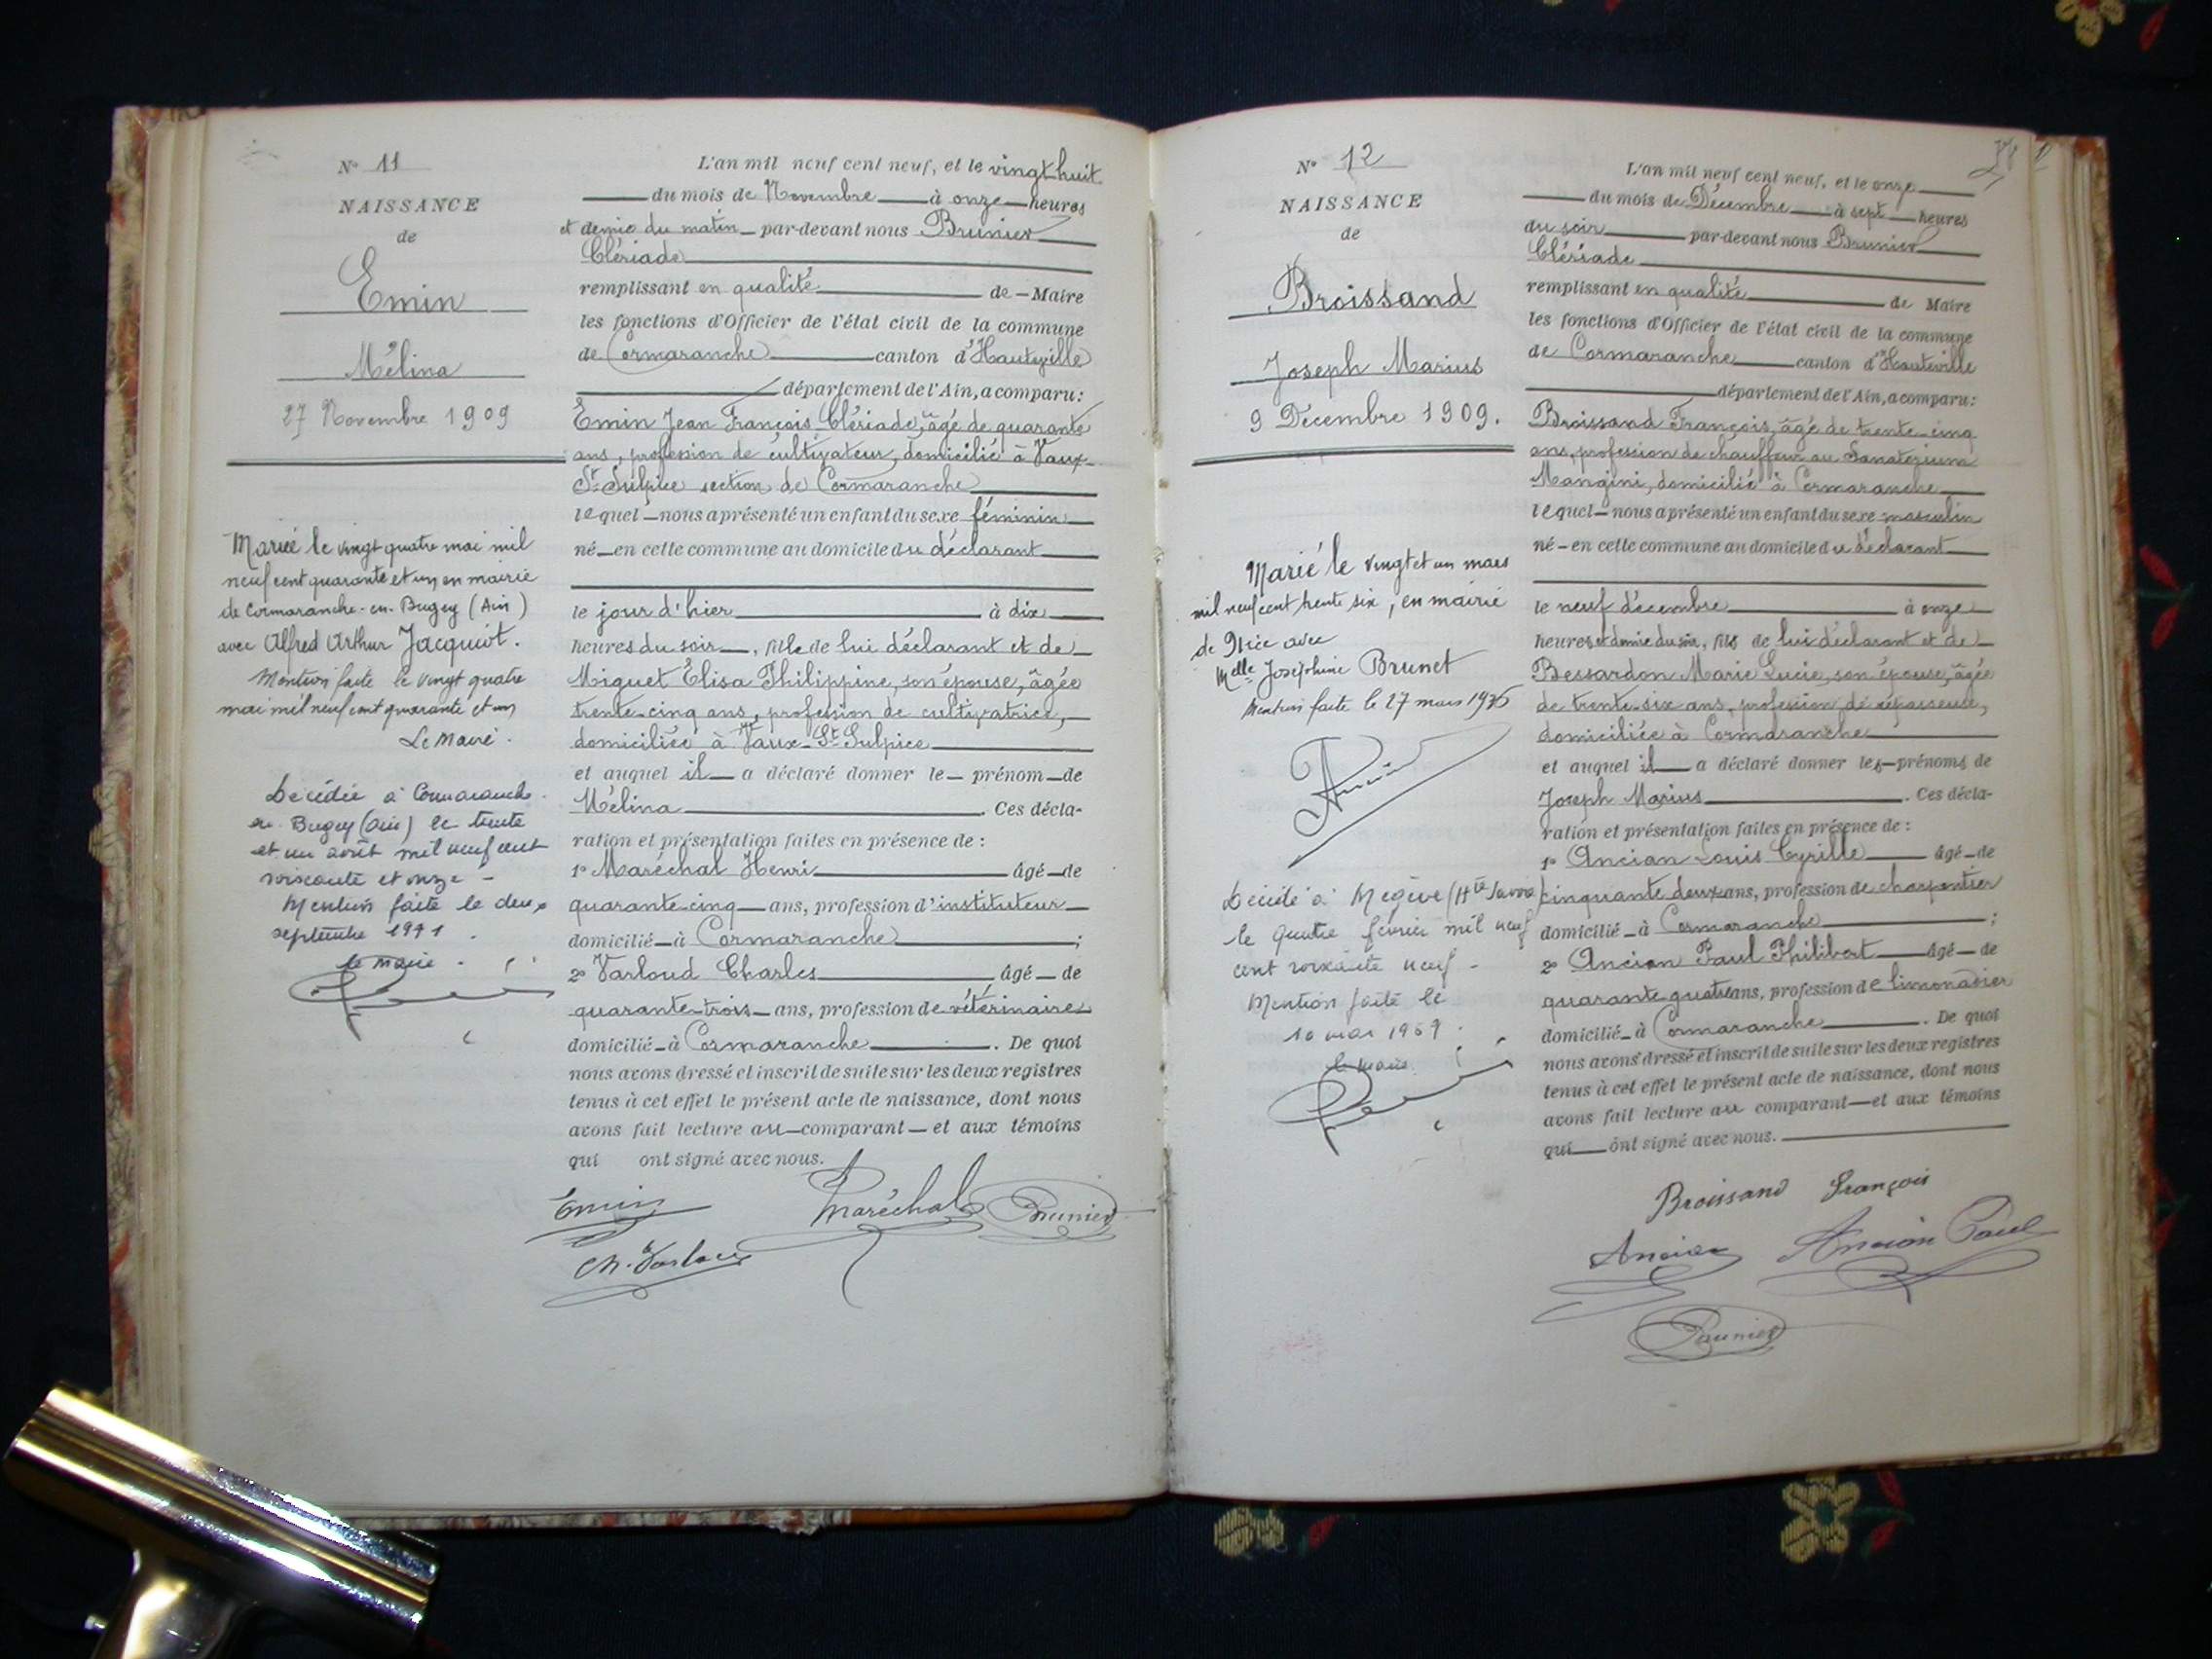 N° 11
NAISSANCE
de
Emin
Mélina
27 Novembre 1909
Mariée le vingt quatre mai mil
neuf cent quarante et un en mairie
de Cormaranche-en-Bugey (Ain)
avec Alfred Arthur Jacquiot.
Mention faite le vingt quatre
mai mil neuf cent quarante et un
Le Maire.
Décédée à Cormaranche-
en-Bugey (Ain) le trente
et un août mil neuf cent
soixante et onze -
Mention faite le deux
septembre 1971.
le maire.
L'an mil neuf cent neuf, et le vingt huit
du mois de Novembre à onze heures
et demie du matin par-devant nous Brunier
Clériade
remplissant en qualité de Maire
les fonctions d'Officier de l'état civil de la commune
de Cormaranche canton d'Hauteville
département de l'Ain, a comparu:
Emin Jean François Clériade, âgé de quarante
ans, profession de cultivateur, domicilié à Vaux-
St-Sulpice section de Cormaranche
lequel nous a présenté un enfant du sexe féminin
né en cette commune au domicile du déclarant
le jour d'hier à dix
heures du soir, fille de lui déclarant et de
Miguet Elisa Philippine, son épouse, âgée
trente-cinq ans, profession de cultivatrice,
domiciliée à Vaux-St-Sulpice
et auquel il a déclaré donner le prénom de
Mélina. Ces décla-
ration et présentation faites en présence de :
1° Maréchal Henri âgé de
quarante-cinq ans, profession d'instituteur
domicilié à Cormaranche ;
2° Varloud Charles âgé de
quarante-trois ans, profession de vétérinaire
domicilié à Cormaranche. De quoi
nous avons dressé et inscrit de suite sur les deux registres
tenus à cet effet le présent acte de naissance, dont nous
avons fait lecture au comparant et aux témoins
qui ont signé avec nous.
Emin Maréchal Brunier
Ch. Varloud
N° 12
NAISSANCE
de
Broissand
Joseph Marius
9 Décembre 1909.
Marié le vingt et un mars
mil neuf cent trente six, en mairie
de Nice avec
Melle Joséphine Brunet
Mention faite le 27 mars 1936
Décédé à Megève (Hte Savoie)
le quatre février mil neuf
cent soixante neuf -
Mention faite le
10 mai 1969.
le maire.
L'an mil neuf cent neuf, et le onze
du mois de Décembre à sept heures
du soir par-devant nous Brunier
Clériade
remplissant en qualité de Maire
les fonctions d'Officier de l'état civil de la commune
de Cormaranche canton d'Hauteville
département de l'Ain, a comparu:
Broissand François, âgé de trente-cinq
ans, profession de chauffeur au Sanatorium
Mangini, domicilié à Cormaranche
lequel nous a présenté un enfant du sexe masculin
né en cette commune au domicile du déclarant
le neuf décembre à onze
heures et demie du soir, fils de lui déclarant et de
Bessardon Marie Lucie, son épouse, âgée
de trente-six ans, profession de repasseuse,
domiciliée à Cormaranche
et auquel il a déclaré donner les prénoms de
Joseph Marius. Ces décla-
ration et présentation faites en présence de :
1° Ancian Louis Cyrille âgé de
cinquante deux ans, profession de charpentier
domicilié à Cormaranche ;
2° Ancian Paul Philibert âgé de
quarante quatre ans, profession de limonadier
domicilié à Cormaranche. De quoi
nous avons dressé et inscrit de suite sur les deux registres
tenus à cet effet le présent acte de naissance, dont nous
avons fait lecture au comparant et aux témoins
qui ont signé avec nous.
Broissand François
Ancian Ancian Paul
Brunier